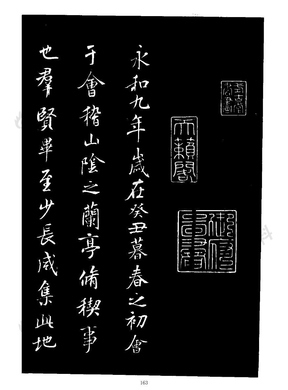 永和九年歲在癸丑暮春之初會
于會稽山陰之蘭亭脩稧事
也羣賢畢至少長咸集此地
天籟閣
163